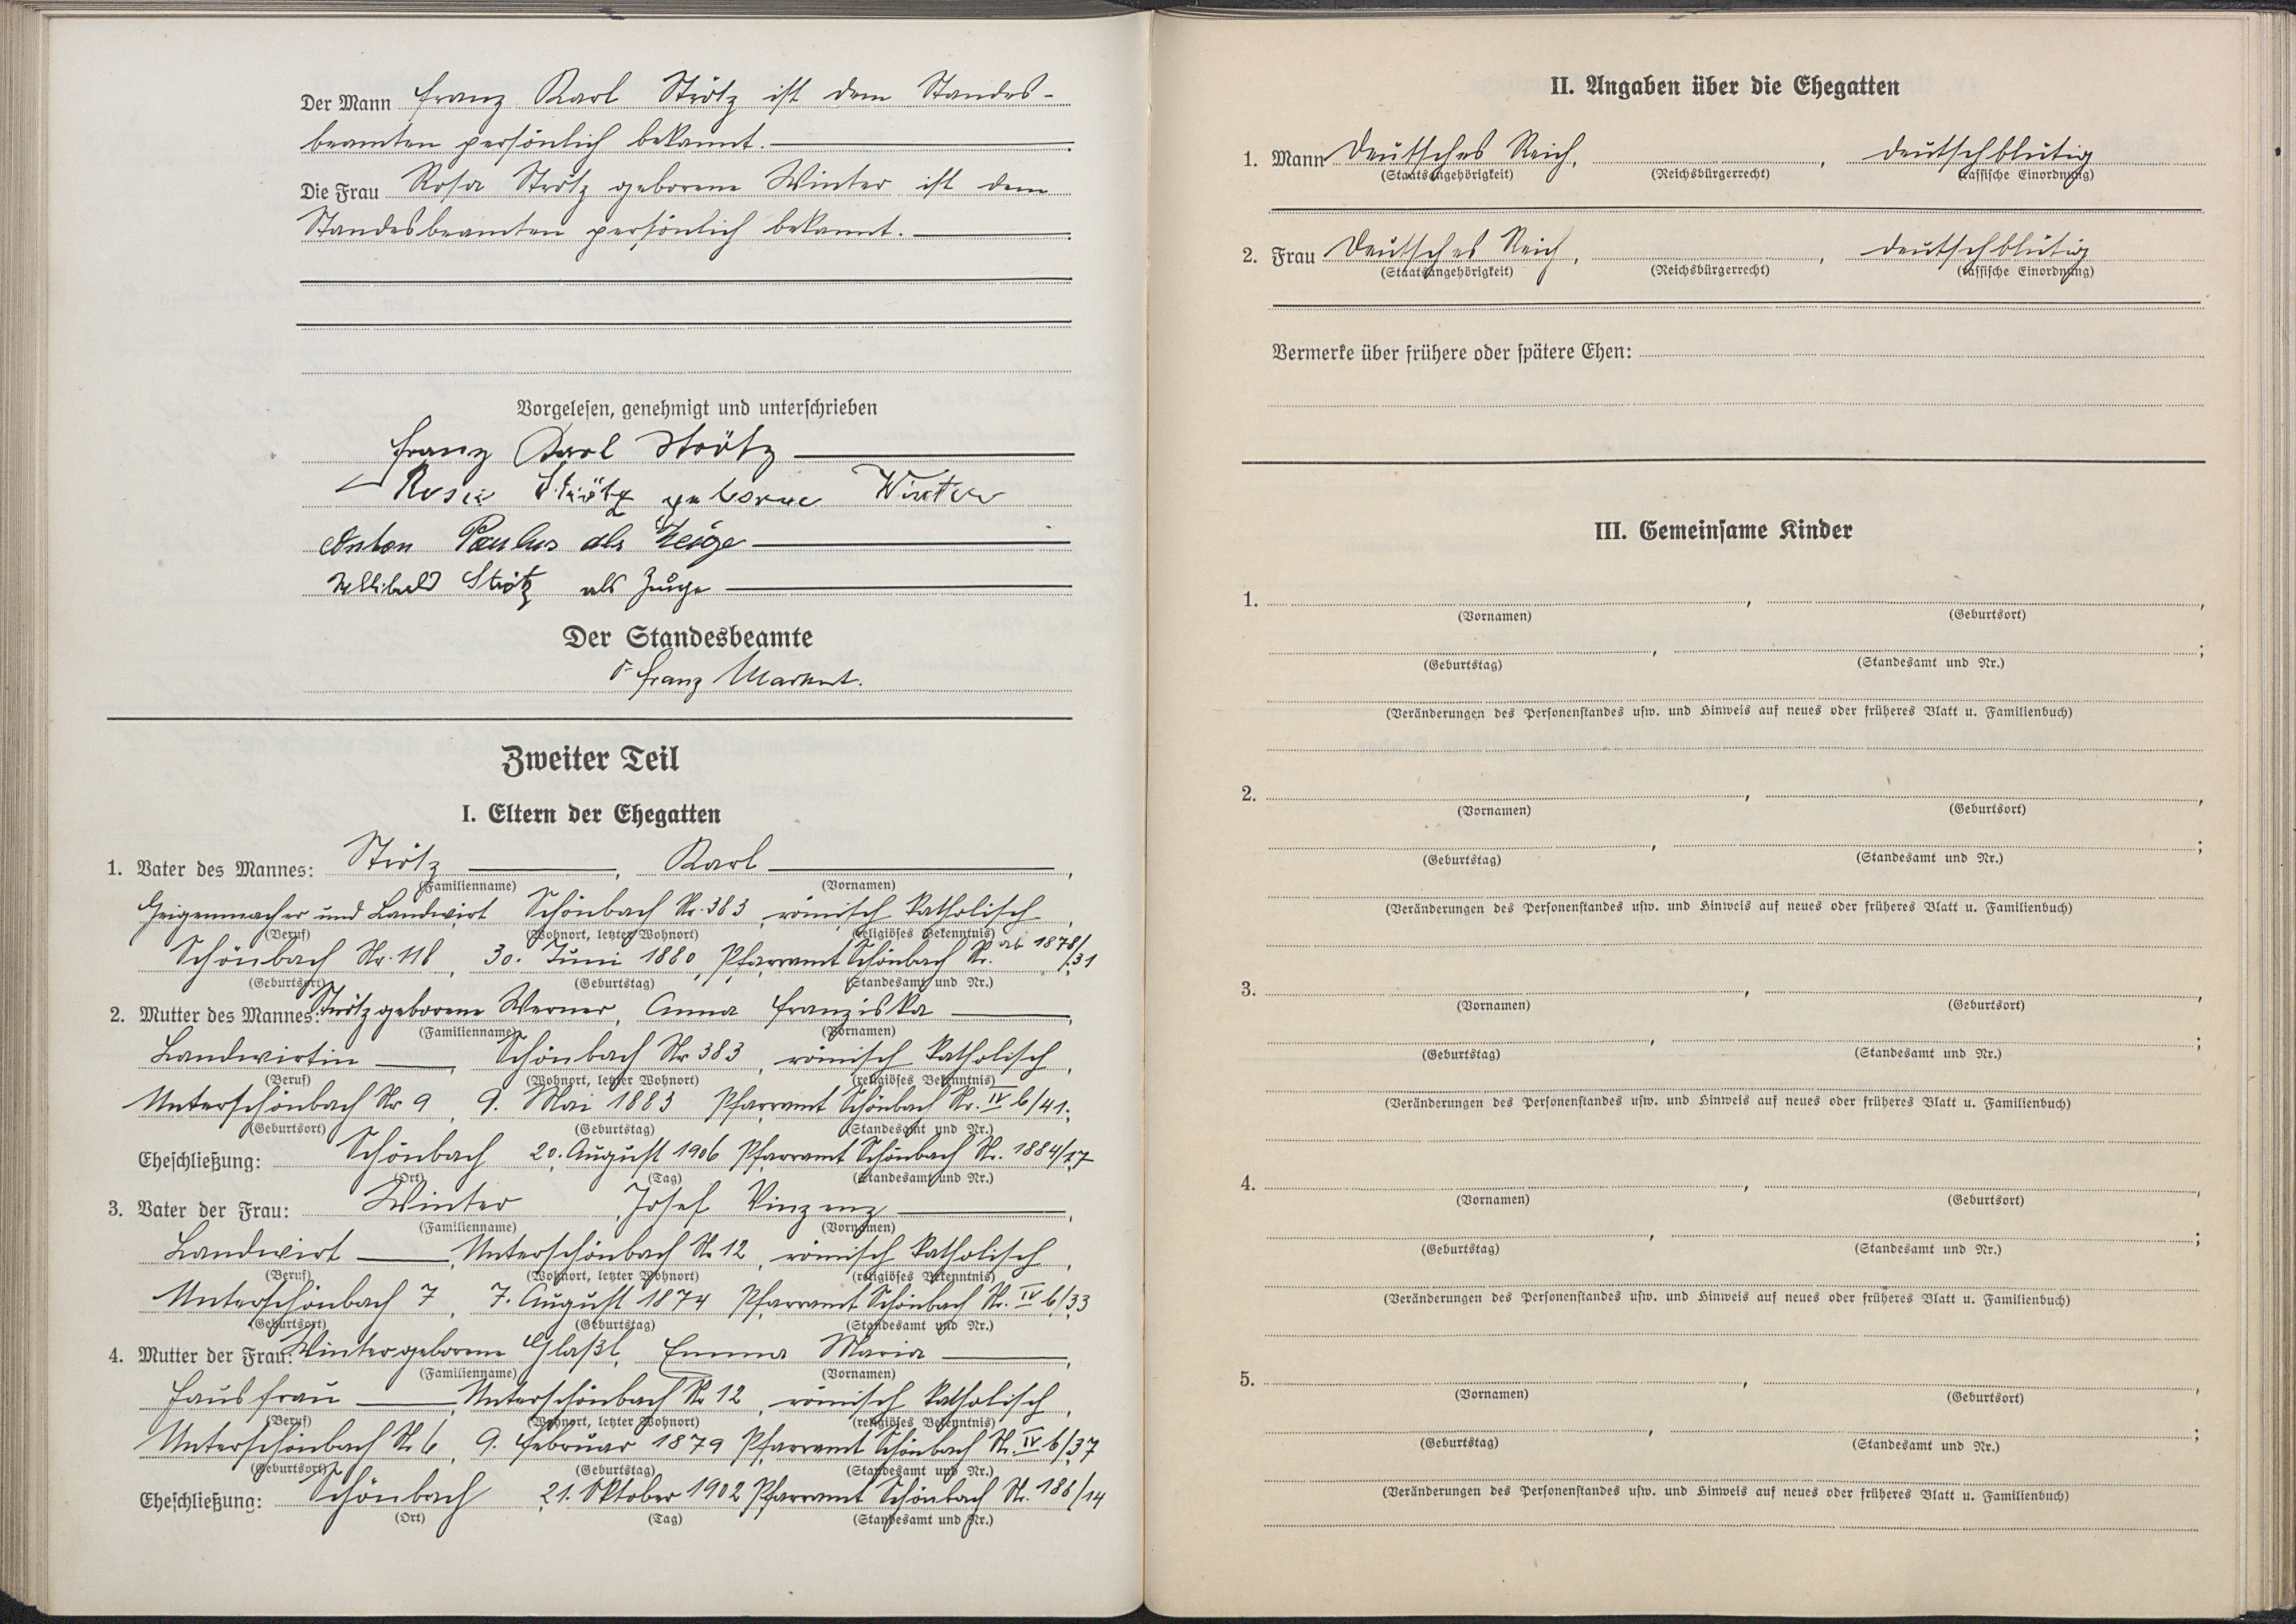 Der Mann Franz Karl Strötz ist dem Standes-
beamten persönlich bekannt.
Die Frau Rosa Strötz geborene Winter ist dem
Standesbeamten persönlich bekannt.
Vorgelesen, genehmigt und unterschrieben
Franz Karl Strötz
Rosa Strötz geborne Winter
Anton Paulus als Zeuge
Willibald Strötz als Zeuge
Der Standesbeamte
Franz
Zweiter Teil
I. Eltern der Ehegatten
1. Vater des Mannes: Strötz, Karl,
(Familienname) (Vornamen)
Geigenmacher und Landwirt Schönbach Nr. 383, römisch katholisch,
(Beruf) (Wohnort, letzter Wohnort) (religiöses Bekenntnis)
Schönbach Nr. 118, 30. Juni 1880, Pfarramt Schönbach Nr. ab 1878/31
(Geburtsort) (Geburtstag) (Standesamt und Nr.)
2. Mutter des Mannes: Strötz geborene Werner, Anna Franziska,
(Familienname) (Vornamen)
Landwirtin, Schönbach Nr 383, römisch katholisch,
(Beruf) (Wohnort, letzter Wohnort) (religiöses Bekenntnis)
Unterschönbach Nr 9, 9. Mai 1883 Pfarramt Schönbach Nr. IV b/41;
(Geburtsort) (Geburtstag) (Standesamt und Nr.)
Eheschließung: Schönbach 20. August 1906 Pfarramt Schönbach Nr. 1884/17
(Ort) (Tag) (Standesamt und Nr.)
3. Vater der Frau: Winter, Josef Vinzenz,
(Familienname) (Vornamen)
Landwirt, Unterschönbach Nr 12, römisch katholisch,
(Beruf) (Wohnort, letzter Wohnort) (religiöses Bekenntnis)
Unterschönbach 7, 7. August 1874 Pfarramt Schönbach Nr. IV b/33
(Geburtsort) (Geburtstag) (Standesamt und Nr.)
4. Mutter der Frau: Winter geborene Glaßl, Emma Maria,
(Familienname) (Vornamen)
Hausfrau, Unterschönbach Nr 12, römisch katholisch,
(Beruf) (Wohnort, letzter Wohnort) (religiöses Bekenntnis)
Unterschönbach Nr 6, 9. Februar 1879 Pfarramt Schönbach Nr. IV b/37
(Geburtsort) (Geburtstag) (Standesamt und Nr.)
Eheschließung: Schönbach 21. Oktober 1902 Pfarramt Schönbach Nr.
(Ort) (Tag) (Standesamt und Nr.)
II. Angaben über die Ehegatten
1. Mann Deutsches Reich, , deutschblütig
(Staatsangehörigkeit) (Reichsbürgerrecht) (rassische Einordnung)
2. Frau Deutsches Reich, , deutschblütig
(Staatsangehörigkeit) (Reichsbürgerrecht) (rassische Einordnung)
Vermerke über frühere oder spätere Ehen:
III. Gemeinsame Kinder
1. , ,
(Vornamen) (Geburtsort)
, ;
(Geburtstag) (Standesamt und Nr.)
(Veränderungen des Personenstandes usw. und Hinweis auf neues oder früheres Blatt u. Familienbuch)
2. , ,
(Vornamen) (Geburtsort)
, ;
(Geburtstag) (Standesamt und Nr.)
(Veränderungen des Personenstandes usw. und Hinweis auf neues oder früheres Blatt u. Familienbuch)
3. , ,
(Vornamen) (Geburtsort)
, ;
(Geburtstag) (Standesamt und Nr.)
(Veränderungen des Personenstandes usw. und Hinweis auf neues oder früheres Blatt u. Familienbuch)
4. , ,
(Vornamen) (Geburtsort)
, ;
(Geburtstag) (Standesamt und Nr.)
(Veränderungen des Personenstandes usw. und Hinweis auf neues oder früheres Blatt u. Familienbuch)
5. , ,
(Vornamen) (Geburtsort)
, ;
(Geburtstag) (Standesamt und Nr.)
(Veränderungen des Personenstandes usw. und Hinweis auf neues oder früheres Blatt u. Familienbuch)